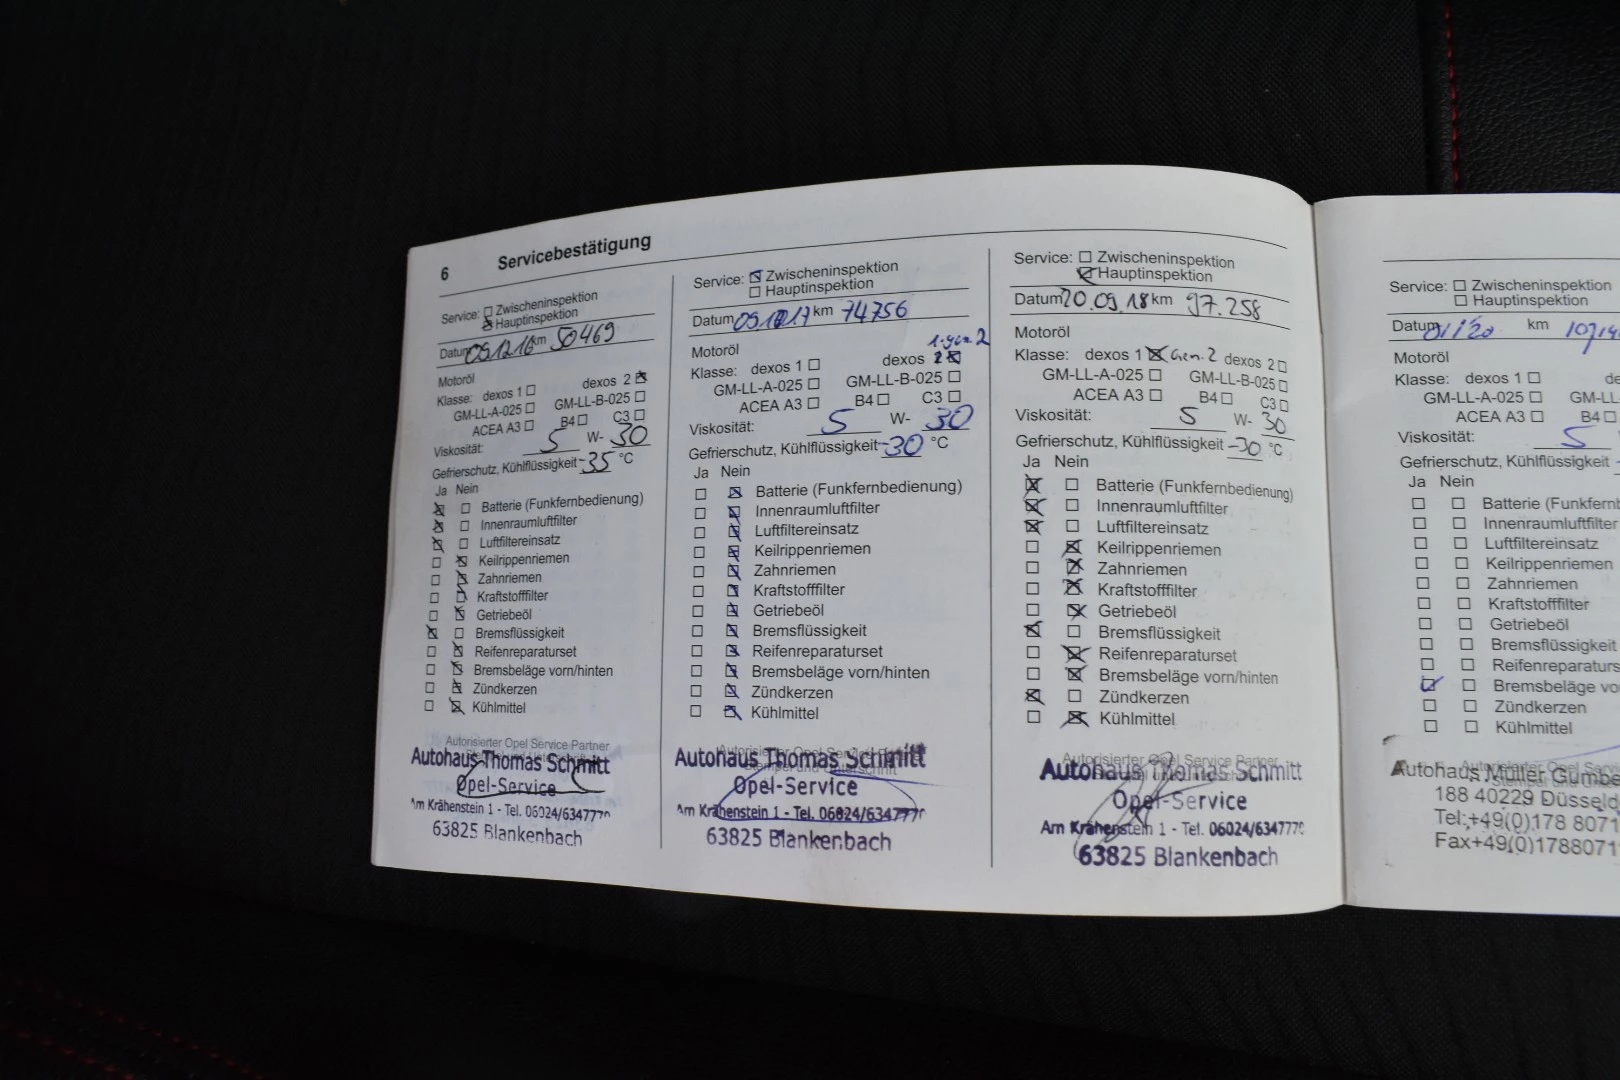 6 Servicebestätigung
Service: Zwischeninspektion
Hauptinspektion
Datum 05.12.16 km 50469
Motoröl
Klasse: dexos 1 dexos 2
GM-LL-A-025 GM-LL-B-025
ACEA A3 B4 C3
Viskosität: 5 W- 30
Gefrierschutz, Kühlflüssigkeit -35 °C
Ja Nein
Batterie (Funkfernbedienung)
Innenraumluftfilter
Luftfiltereinsatz
Keilrippenriemen
Zahnriemen
Kraftstofffilter
Getriebeöl
Bremsflüssigkeit
Reifenreparaturset
Bremsbeläge vorn/hinten
Zündkerzen
Kühlmittel
Autorisierter Opel Service Partner
Autohaus Thomas Schmitt
Opel-Service
Am Krähenstein 1 - Tel. 06024/6347770
63825 Blankenbach
Service: Zwischeninspektion
Hauptinspektion
Datum km 74756
Motoröl
1-gen.2
Klasse: dexos 1 dexos 2
GM-LL-A-025 GM-LL-B-025
ACEA A3 B4 C3
Viskosität: 5 W- 30
Gefrierschutz, Kühlflüssigkeit -30 °C
Ja Nein
Batterie (Funkfernbedienung)
Innenraumluftfilter
Luftfiltereinsatz
Keilrippenriemen
Zahnriemen
Kraftstofffilter
Getriebeöl
Bremsflüssigkeit
Reifenreparaturset
Bremsbeläge vorn/hinten
Zündkerzen
Kühlmittel
Autohaus Thomas Schmitt
Opel-Service
Am Krähenstein 1 - Tel. 06024/6347770
63825 Blankenbach
Service: Zwischeninspektion
Hauptinspektion
Datum 20.09.18 km 97.258
Motoröl
Klasse: dexos 1 Gen. 2 dexos 2
GM-LL-A-025 GM-LL-B-025
ACEA A3 B4 C3
Viskosität: 5 W- 30
Gefrierschutz, Kühlflüssigkeit -30 °C
Ja Nein
Batterie (Funkfernbedienung)
Innenraumluftfilter
Luftfiltereinsatz
Keilrippenriemen
Zahnriemen
Kraftstofffilter
Getriebeöl
Bremsflüssigkeit
Reifenreparaturset
Bremsbeläge vorn/hinten
Zündkerzen
Kühlmittel
Autohaus Thomas Schmitt
Opel-Service
Am Krähenstein 1 - Tel. 06024/6347770
63825 Blankenbach
Service: Zwischeninspektion
Hauptinspektion
Datum km
Motoröl
Klasse: dexos 1 de
GM-LL-A-025 GM-LL
ACEA A3 B4
Viskosität: 5
Gefrierschutz, Kühlflüssigkeit
Ja Nein
Batterie (Funkfernb
Innenraumluftfilter
Luftfiltereinsatz
Keilrippenriemen
Zahnriemen
Kraftstofffilter
Getriebeöl
Bremsflüssigkeit
Reifenreparaturs
Bremsbeläge vo
Zündkerzen
Kühlmittel
Autohaus Müller Gumbe
188 40229 Düsseld
Tel:+49(0)178 8071
Fax+49(0)1788071